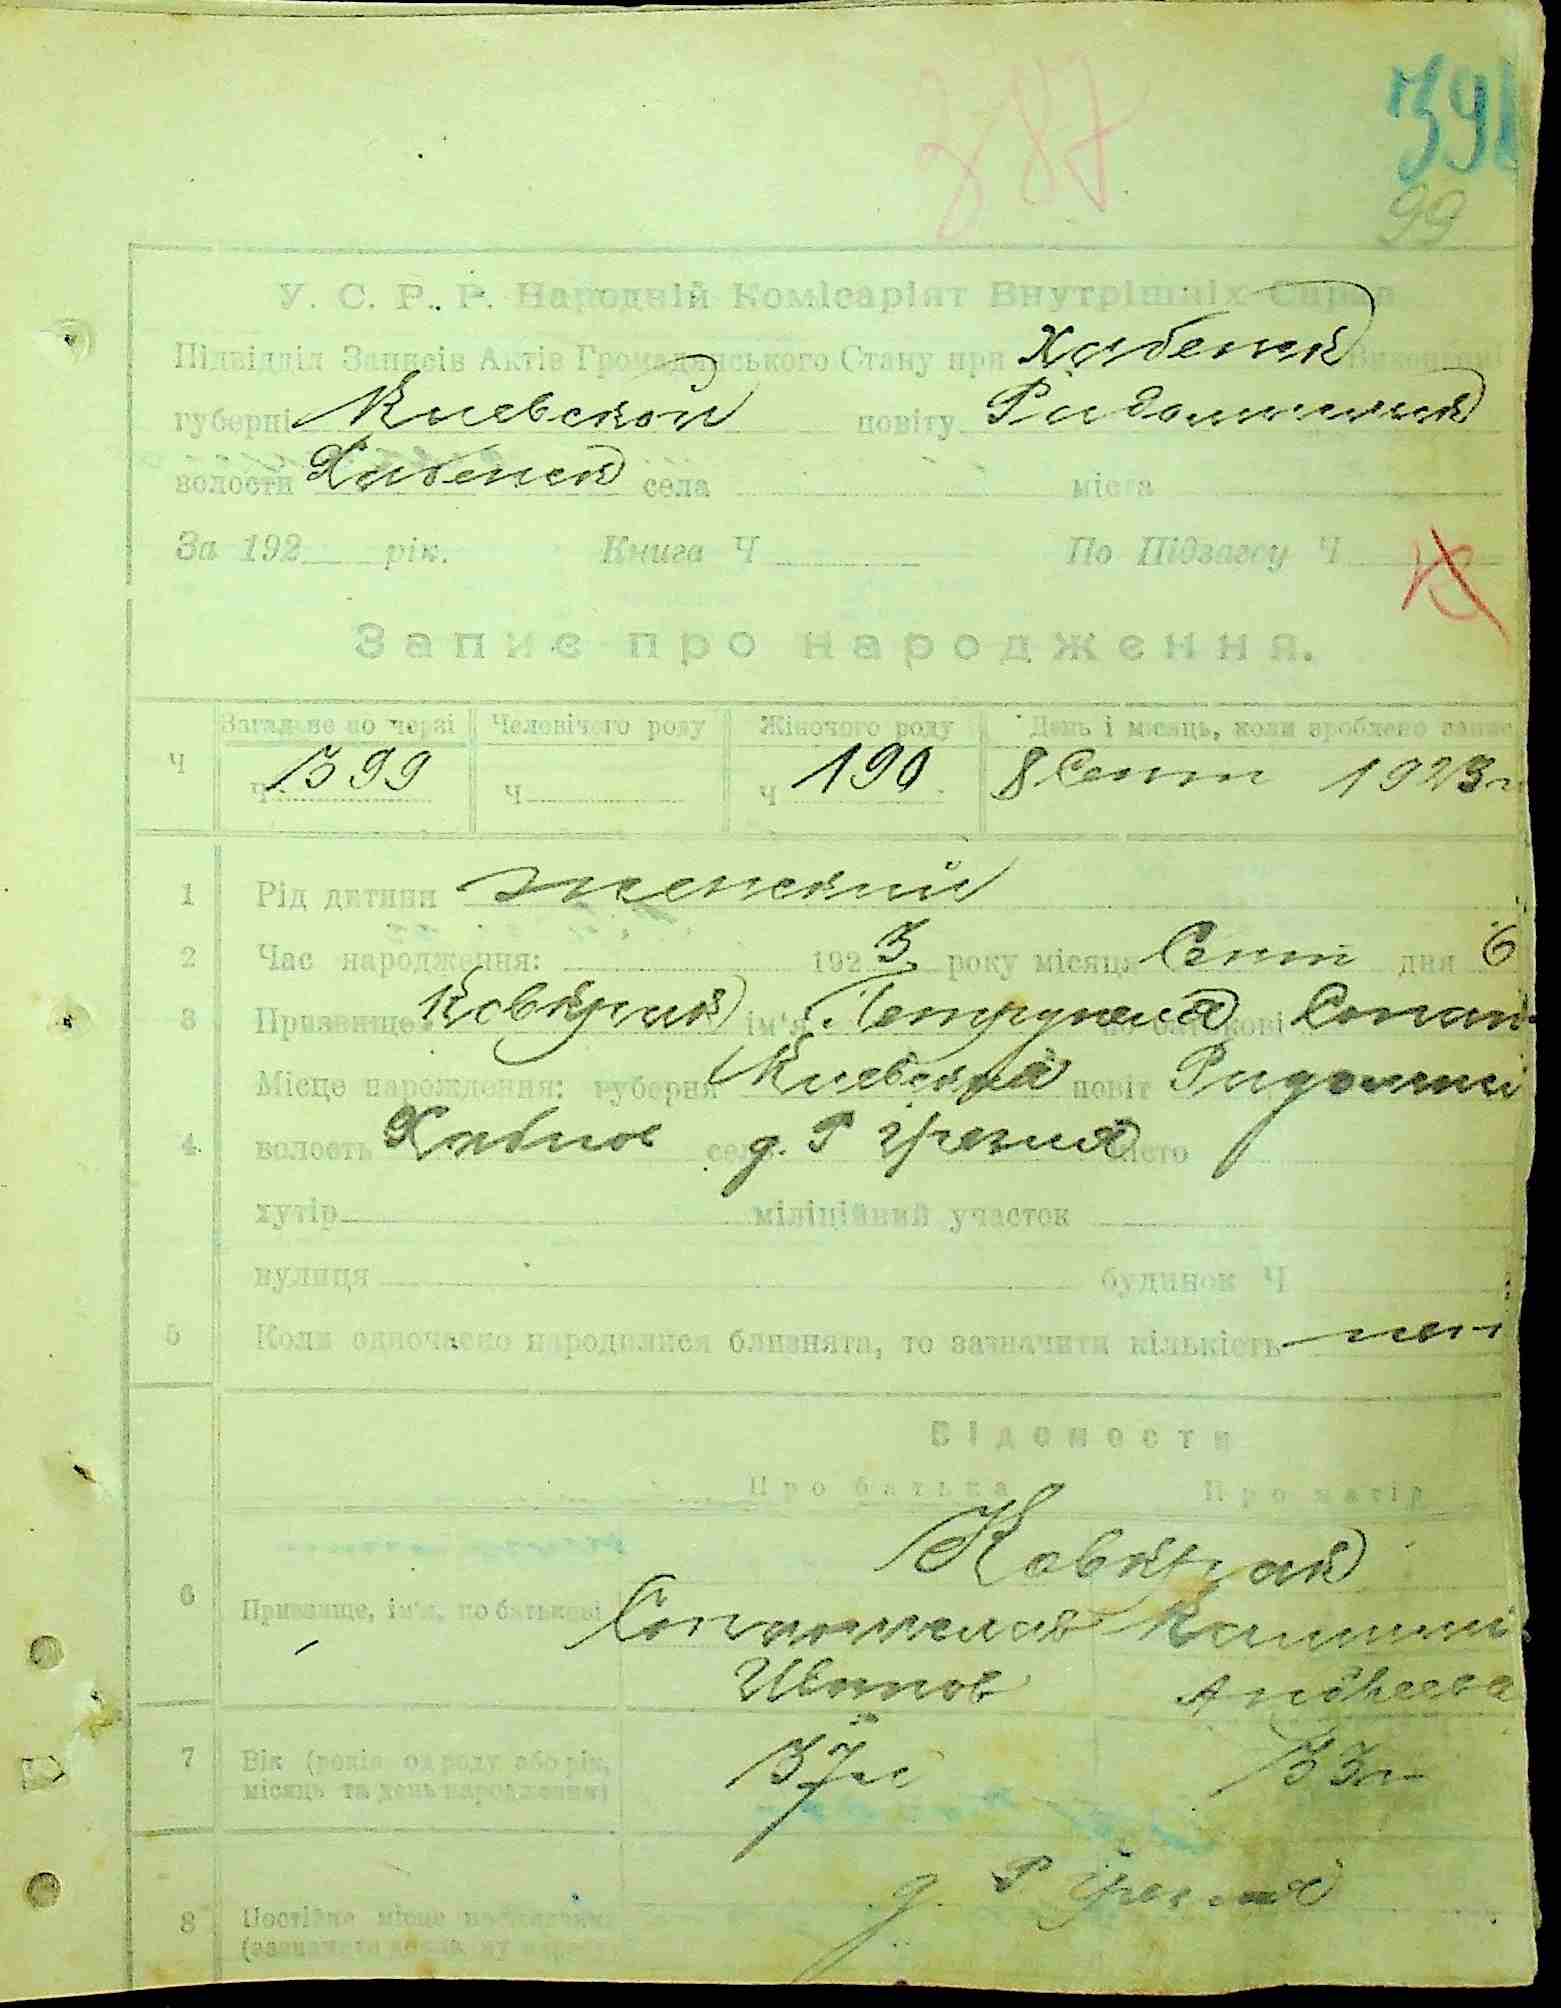 387
391
99
У. С. Р. Р. Народній Комісаріят Внутрішніх Справ
Підвідділ Записів Актів Громадянського Стану при Хабенск
губерні Киевской повіту Радомысльск
волости Хабенск села міста
За 192 рік. Книга Ч По Підзагсу Ч
Запис про народження.
Загальне по черзі Человічого роду Жіночого роду День і місяць, коли зроблено запис
Ч Ч 399 Ч Ч 190 8 Сент 1923 г
1 Рід дитини женский
2 Час народження: 1923 року місяця Сент дня 6
3 Призвище ім'я по батькові
Місце народження: губерня Киевская повіт
4 волость Хабное село д. місто
хутір міліційний участок
вулиця будинок Ч
5 Коли одночасно народилися близнята, то зазначити кількість нет
Відомости
Про батька Про матір
6 Призвище, ім'я, по батькові
Иванов Андреева
7 Вік (років од роду або рік, 37 л 33 г
місяць та день народження)
д.
8 Постійне місце